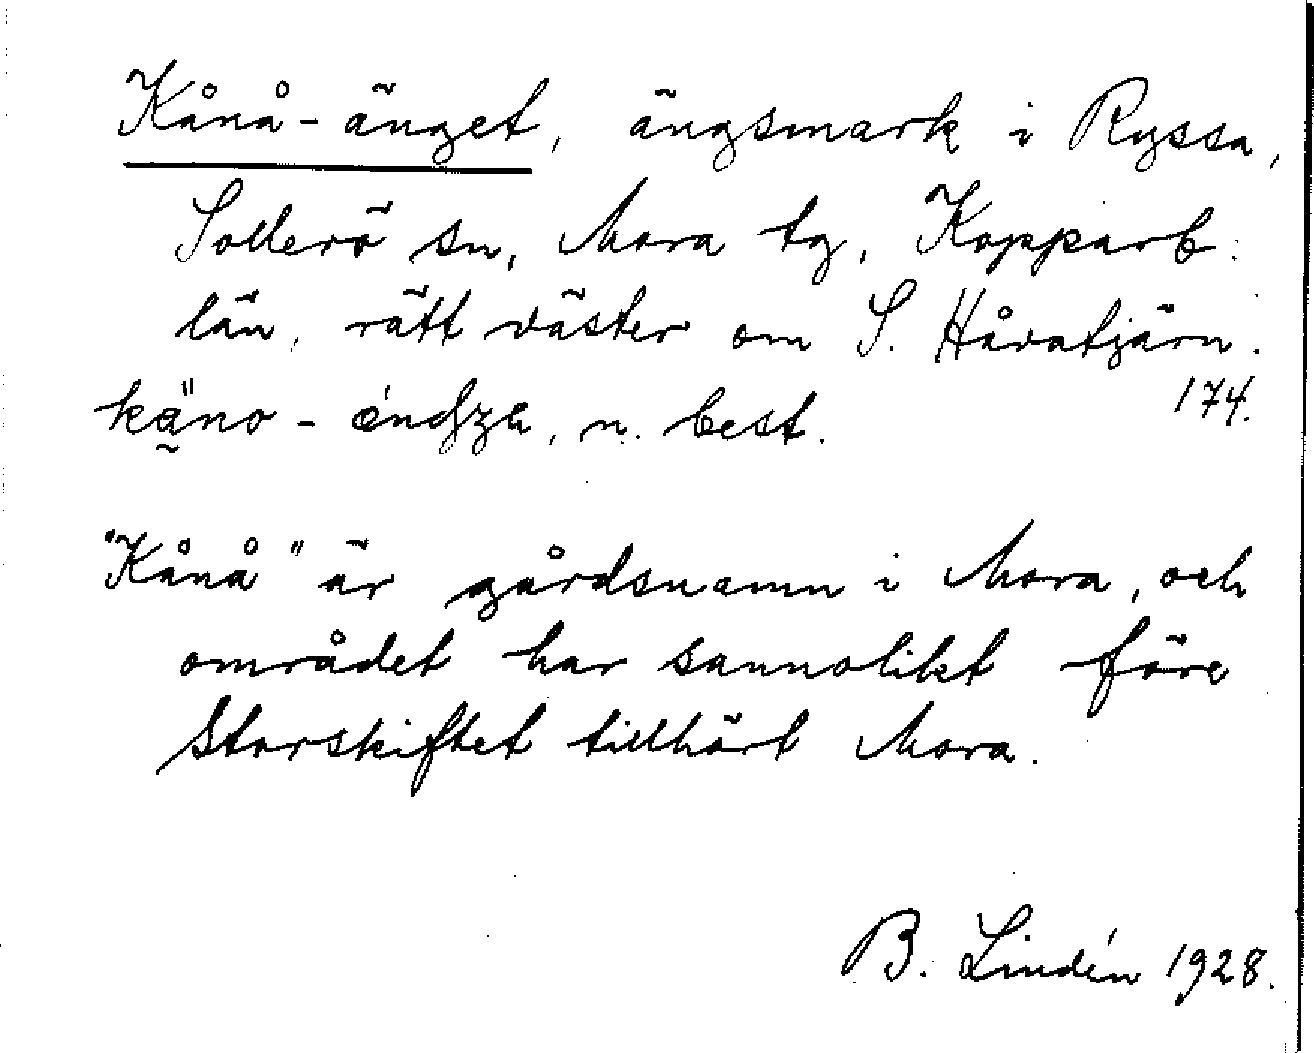 Kånå-änget, ängsmark i Ryssa,
Sollerö sn, Mora tg, Kopparb.
län, rätt väster om S. Håvatjärn.
174.
n. best.
"Kånå" är gårdsnamn i Mora, och
området har sannolikt före
Storskiftet tillhört Mora.
B. Lindén 1928.